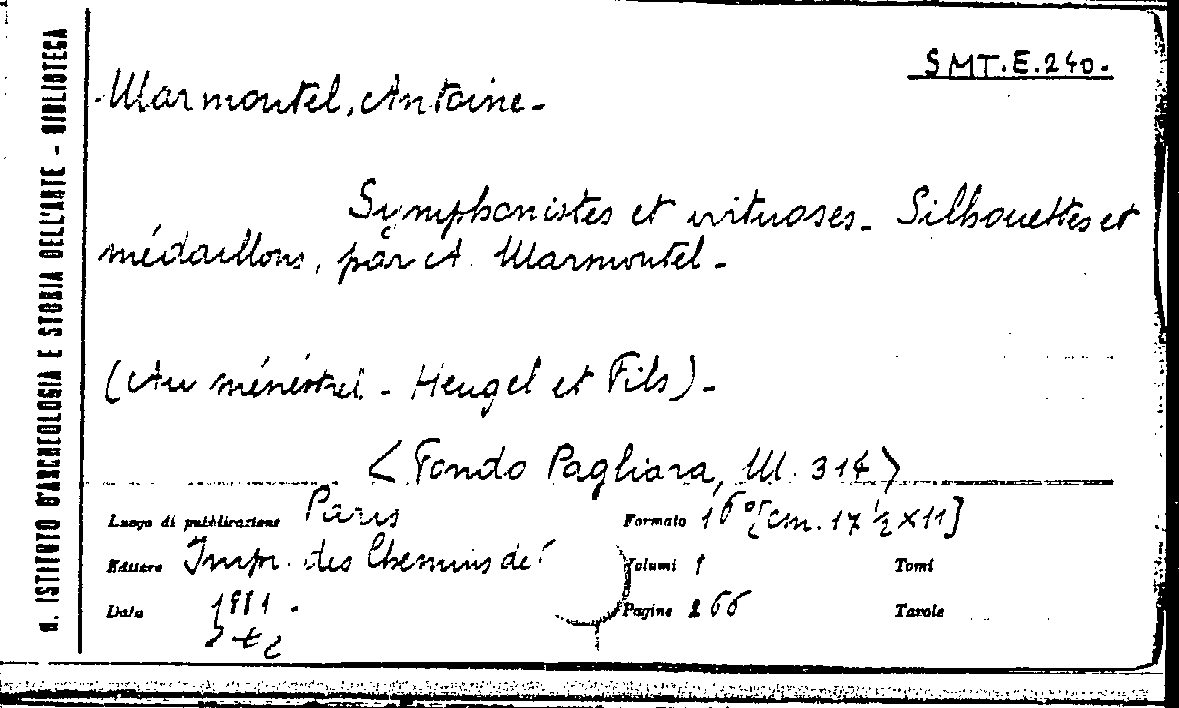 R. ISTITUTO D'ARCHEOLOGIA E STORIA DELL'ARTE - BIBLIOTECA
SMT.E.240.
Marmontel, Antoine-
Symphonistes et virtuoses- Silhouettes et
médaillons, par A. Marmontel-
(Au ménéstrel - Heugel et Fils)-
<Fondo Pagliara, M. 314>
Luogo di pubblicazione Paris Formato 16°[cm. 17 ½ x11]
Editore Impr. des Chemins de Volumi 1 Tomi
Data 1881. Pagine 266 Tavole